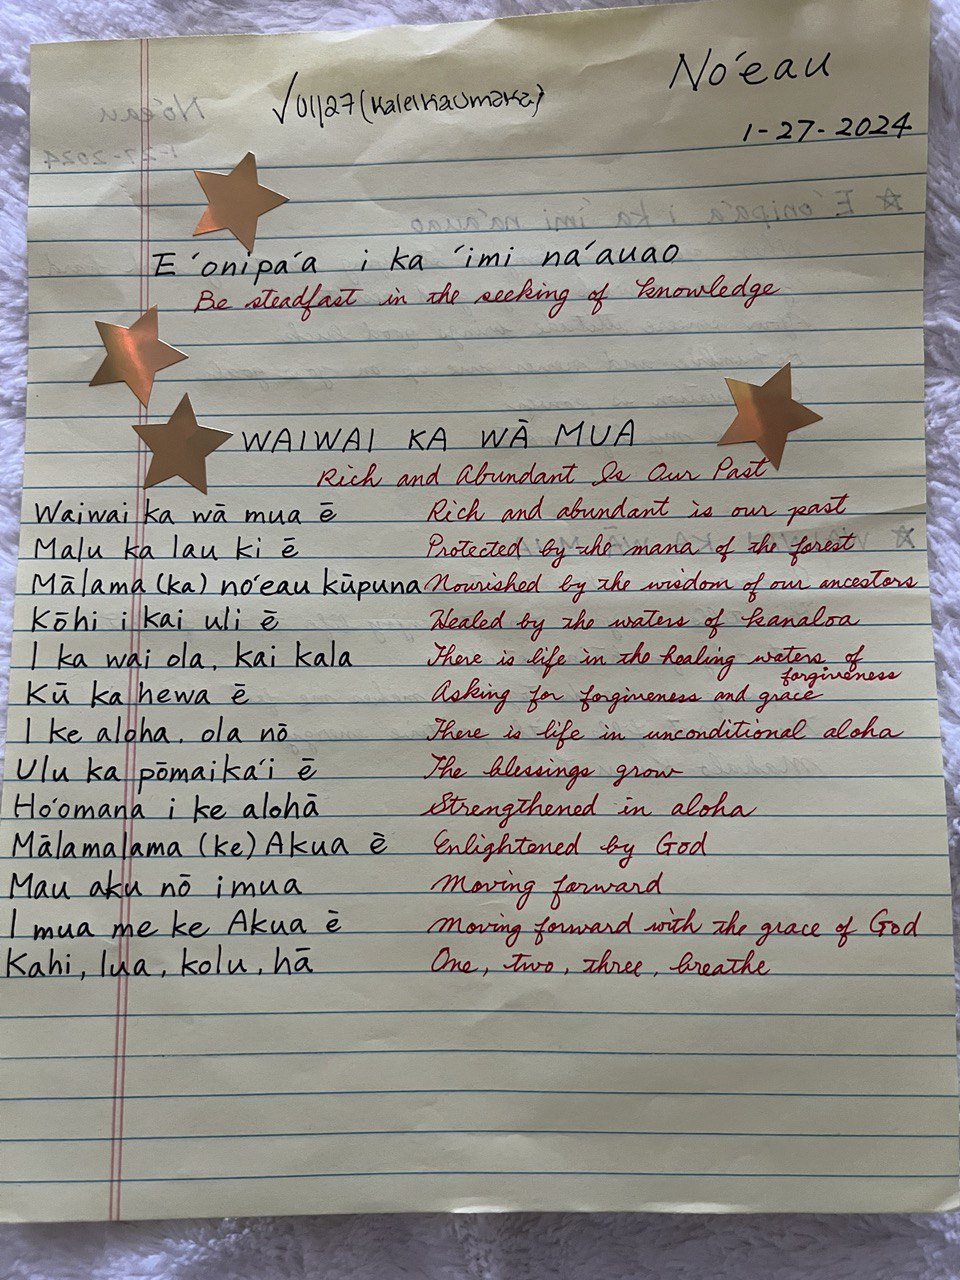 No'eau
√01/27 (Kaleikaumaka)
1-27-2024
E 'onipa'a i ka 'imi na'auao
Be steadfast in the seeking of knowledge
WAIWAI KA WĀ MUA
Rich and Abundant Is Our Past
Waiwai ka wā mua ē Rich and abundant is our past
Malu ka lau ki ē Protected by the mana of the forest
Mālama (ka) no'eau kūpuna Nourished by the wisdom of our ancestors
Kōhi i kai uli ē Healed by the waters of Kanaloa
I ka wai ola, kai kala There is life in the healing waters of
forgiveness
Kū ka hewa ē Asking for forgiveness and grace
I ke aloha, ola nō There is life in unconditional aloha
Ulu ka pōmaika'i ē The blessings grow
Ho'omana i ke alohā Strengthened in aloha
Mālamalama (ke) Akua ē Enlightened by God
Mau aku nō imua Moving forward
I mua me ke Akua ē Moving forward with the grace of God
Kahi, lua, kolu, hā One, two, three, breathe